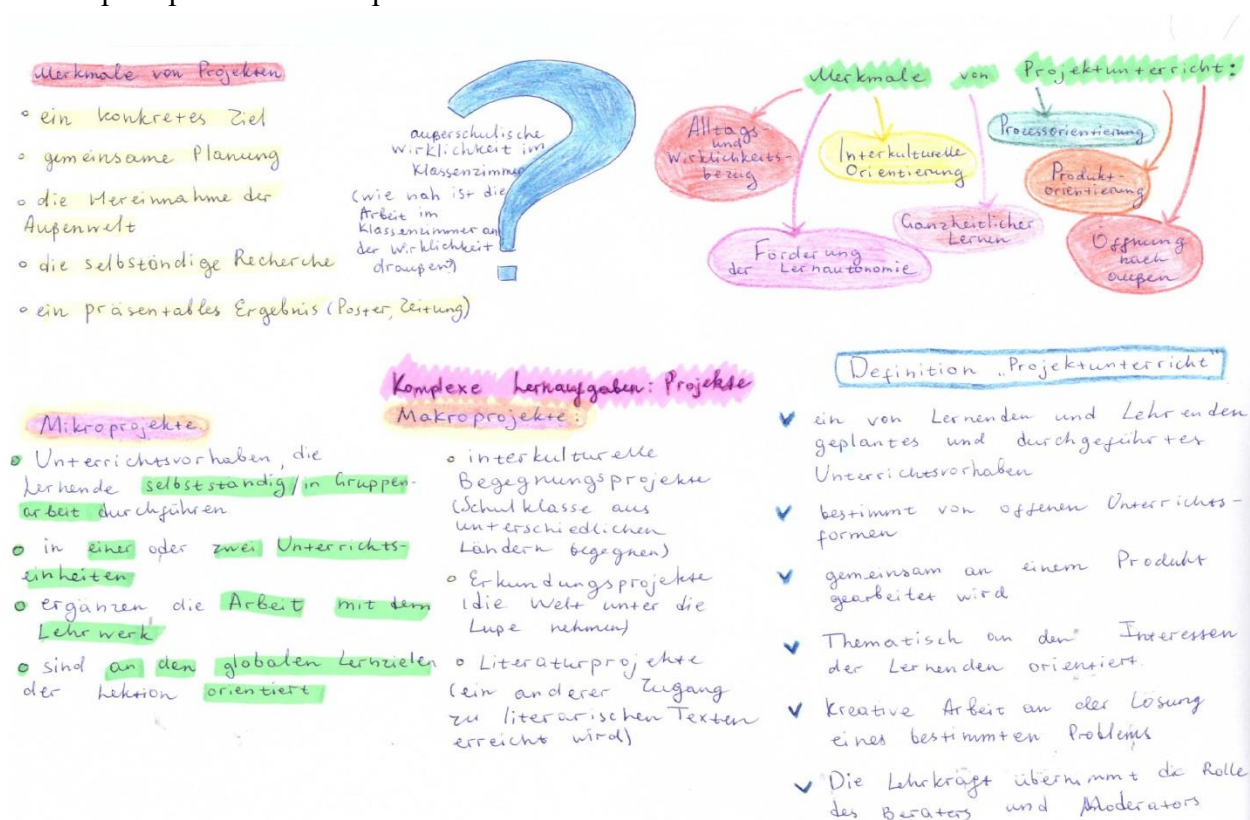 Merkmale von Projekten
ein konkretes Ziel
gemeinsame Planung
die Hereinnahme der
Außenwelt
die selbständige Recherche
ein präsentables Ergebnis (Poster, Zeitung)
außerschulische
Wirklichkeit im
Klassenzimmer
(wie nah ist die
Arbeit im
Klassenzimmer an
der Wirklichkeit
draußen?)
?
Merkmale von Projektunterricht:
Alltags-
und
Wirklichkeits-
bezug
Förderung
der Lernautonomie
Interkulturelle
Orientierung
Ganzheitlicher
Lernen
Prozessorientierung
Produkt-
orientierung
Öffnung
nach
außen
Komplexe Lernaufgaben: Projekte
Mikroprojekte
Unterrichtsvorhaben, die
Lernende selbstständig/in Gruppen-
arbeit durchführen
in einer oder zwei Unterrichts-
einheiten
ergänzen die Arbeit mit dem
Lehrwerk
sind an den globalen Lernzielen
der Lektion orientiert
Makroprojekte:
interkulturelle
Begegnungsprojekte
(Schulklasse aus
unterschiedlichen
Ländern begegnen)
Erkundungsprojekte
(die Welt unter die
Lupe nehmen)
Literaturprojekte
(ein anderer Zugang
zu literarischen Texten
erreicht wird)
Definition „Projektunterricht"
ein von Lernenden und Lehrenden
geplantes und durchgeführtes
Unterrichtsvorhaben
bestimmt von offenen Unterrichts-
formen
gemeinsam an einem Produkt
gearbeitet wird
Thematisch an den Interessen
der Lernenden orientiert.
kreative Arbeit an der Lösung
eines bestimmten Problems
Die Lehrkraft übernimmt die Rolle
des Beraters und Moderators